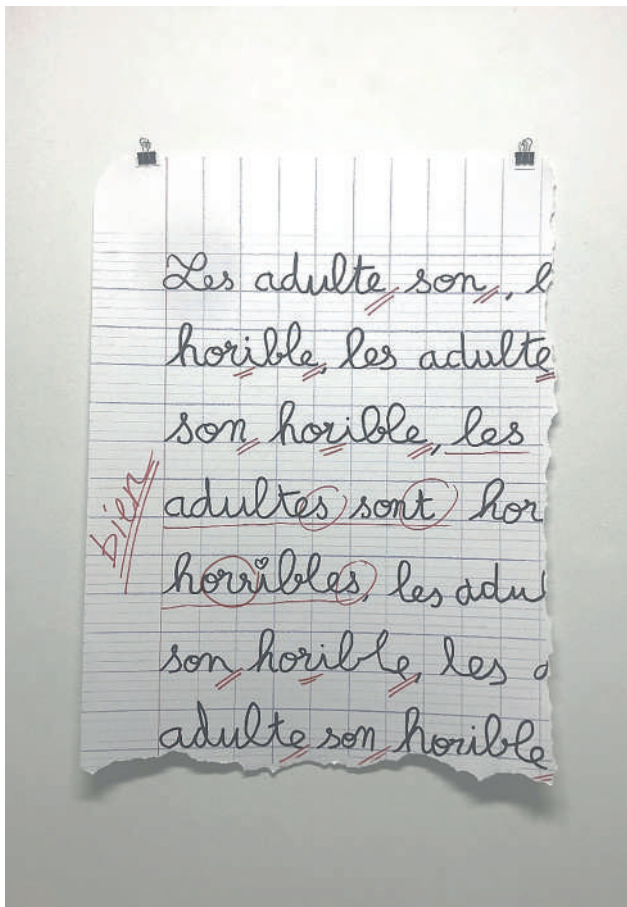 Les adulte son, l
horible, les adulte
son horible, les
adultes sont hor
bien
horribles, les adu
son horible, les
adulte son horible